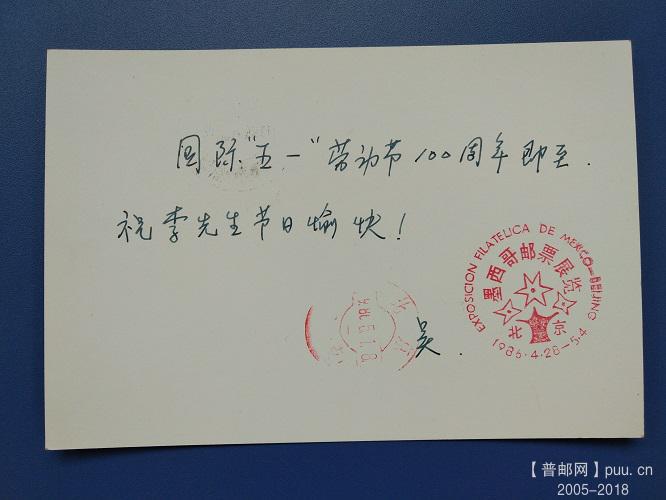 国际“五一”劳动节100周年即至.
祝李先生节日愉快!
吴.
EXPOSICION FILATELICA DE MEXICO-BEIJING
墨西哥邮票展览
北京
1986·4·28-5·4
【普邮网】puu.cn
2005-2018